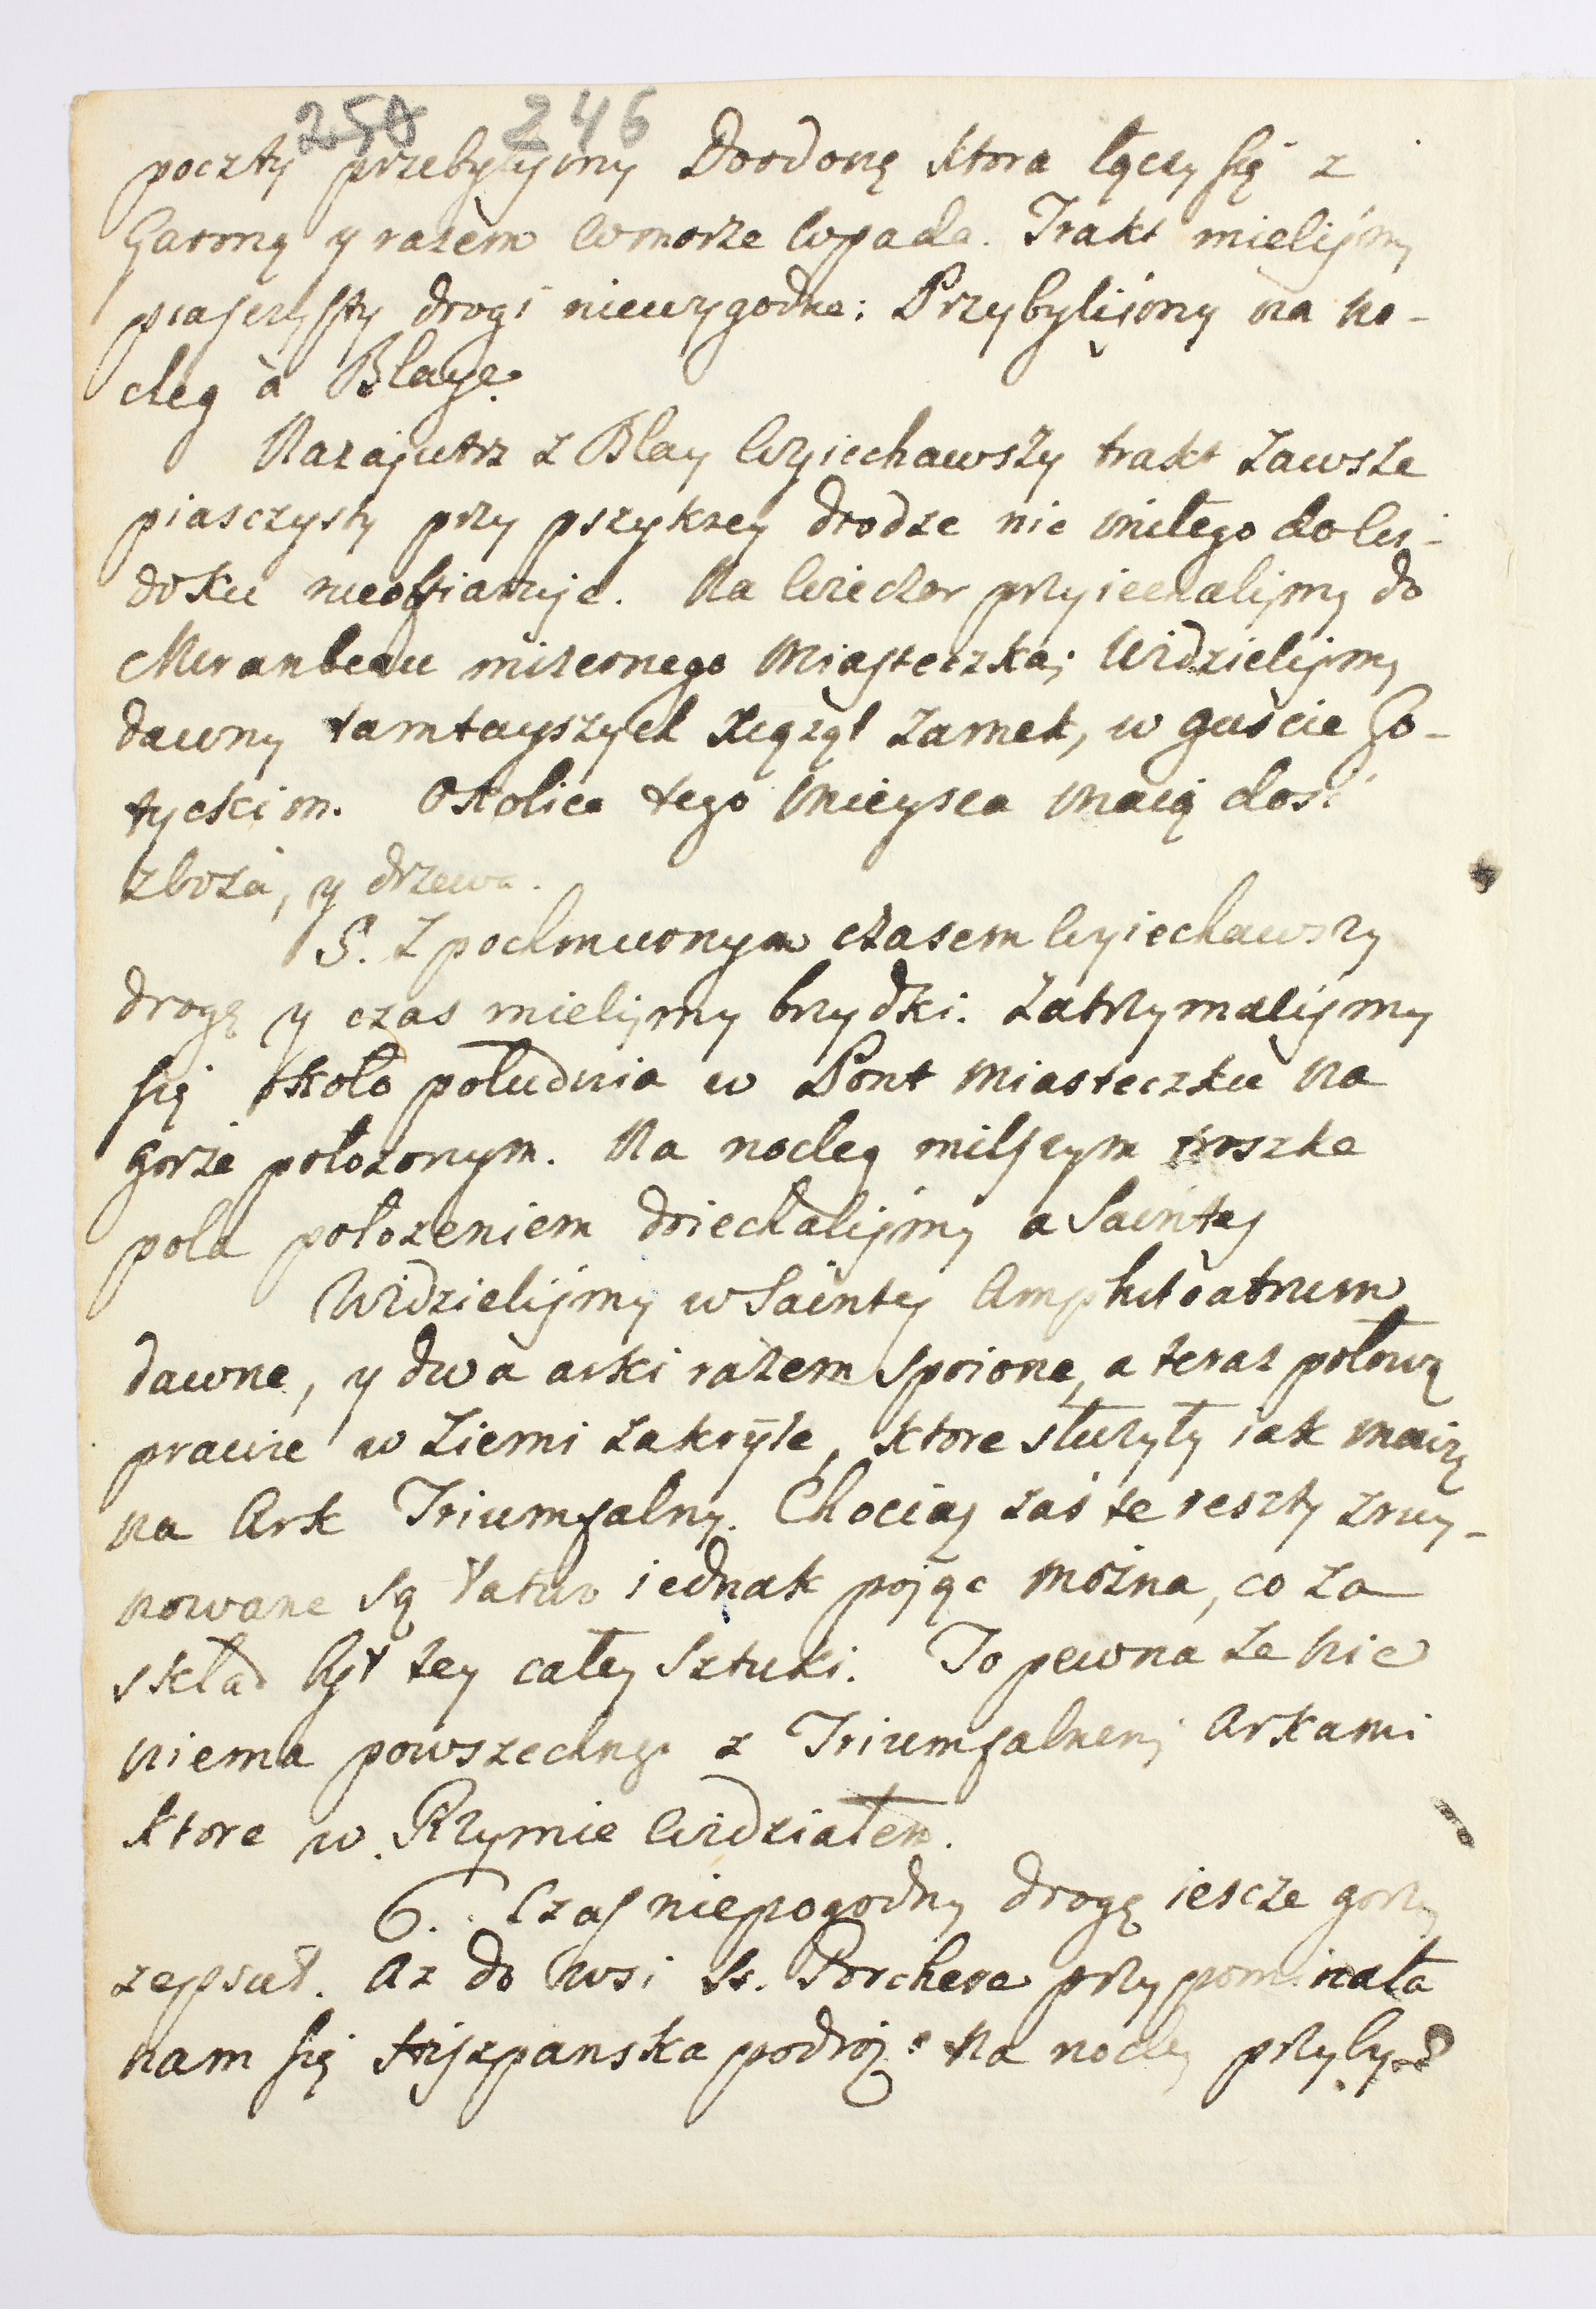 250 246
poczty przebylismy Dordonę ktora łączy się z
Garonną y razem w morze wpada. Trakt mielismy
piasczysty drogi niewygodne: Przybylismy na no-
cleg à Blaye.
Nazajutrz z Blay wyiechawszy trakt zawsze
piasczysty przy przykrey drodze nic miłego do wi-
doku nieofiaruje. Na wieczor przyiechalismy do
Miranbeau mizernego miasteczka; widzielismy
dawny tamtayszych Xiążąt zamek, w guście Go-
tyckim. Okolice tego mieysca maią dosć
zboża, y drzewa.
5. Z pochmurnym czasem wyiechawszy
drogę y czas mielismy brzydki. Zatrzymalismy
się około południa w Pont miasteczku na
gorze położonym. Na nocleg milszym troszke
pola położeniem doiechalismy a Saintes
Widzielismy w Saintes Amphiteatrum
dawne, y dwa arki razem spoione, a teraz połową
prawie w ziemi zakryte, ktore służyły iak mowią
na Ark Triumfalny. Chociaż zaś te reszty zruy-
nowane są łatwo iednak pojąc można, co za
skład był tey całey sztuki. To pewna że nic
niema powszechnego z Triumfalnemi Arkami
ktore w Rzymie widziałem.
6. Czas niepogodny drogę iescze gorzy
zepsuł. Az do wsi St. Porchere przypominała
nam się hiszpanska podroż: Na nocleg